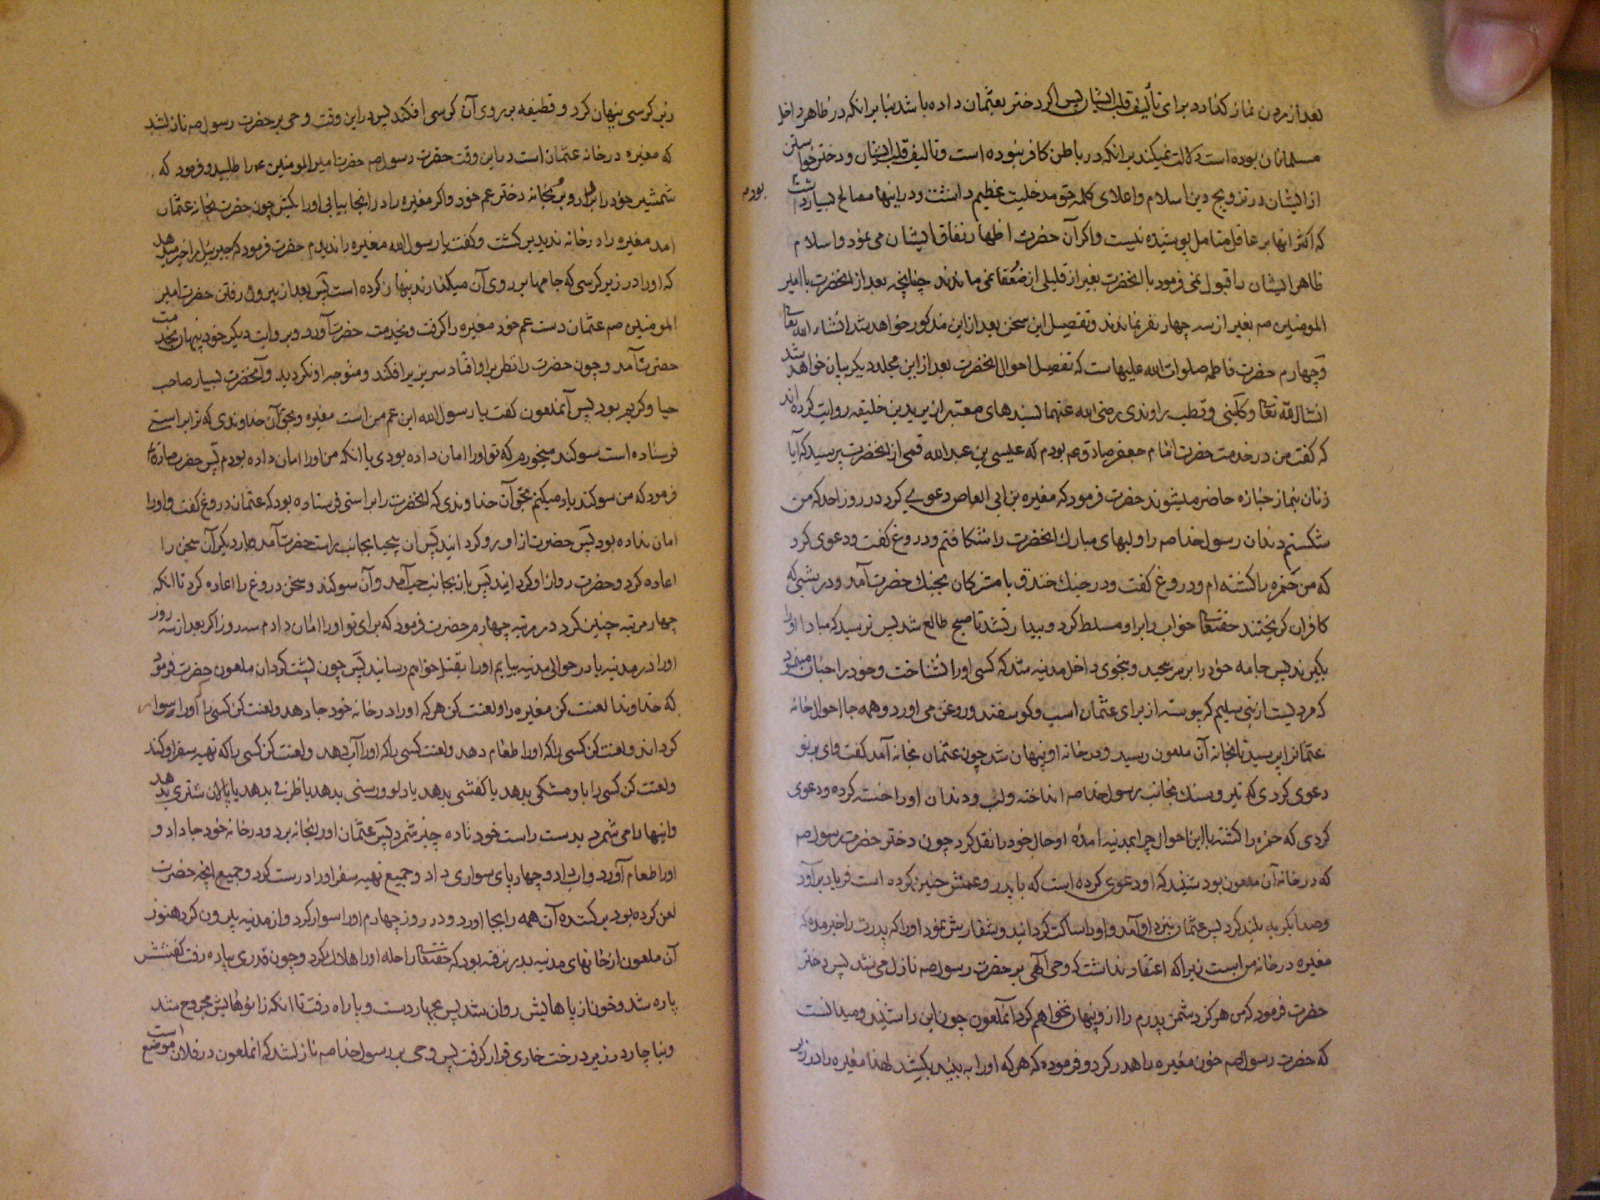 بعد از مردن نماز کنند و برای تألیف قلب ایشان پس اگر دختر بعثمان داده باشد بنا بر انکه در ظاهر داخل
مسلمانان بوده است دلالت نمیکند بر انکه در باطن کافر نبوده است و تالیف قلب ایشان و دختر خواستن
از ایشان در ترویج دین اسلام و اعلای کلمه حق مدخلیت عظیم داشت و در اینها مصالح بسیار داشت
بود
که اکثر انها بر عاقل متامل پوشیده نیست و اکر آن حضرت اظهار نفاق ایشان می نمود و اسلام
ظاهر ایشان را قبول نمی فرمود با انحضرت بغیر از قلیلی از ضعفا نمی ماندند چنانچه بعد از انحضرت با امیر
المومنین صم بغیر از سه چهار نفر نماندند و تفصیل این سخن بعد از این مذکور خواهد شد انشاء الله تعالی
و چهارم حضرت فاطمه صلوات الله علیهاست که تفصیل احوال انحضرت بعد از این مجلد دیکر بیان خواهد شد
انشالله تعا و کلینی و قطب راوندی رضی الله عنهما بسندهای معتبر از یزید بن خلیفه روایت کرده اند
که کفت من در خدمت حضرت امام جعفر صادق عم بودم که عیسی بن عبدالله قمی از انحضرت پرسید که آیا
زنان بنماز جنازه حاضر میشوند حضرت فرمود که مغیره بن ابی العاص دعوی کرد در روز احد که من
شکستم دندان رسول خدا صم را و لبهای مبارک انحضرت را شکافتم و دروغ کفت و دعوی کرد
که من حمزه را کشته ام و دروغ کفت و در جنک خندق با مشرکان بجنک حضرت آمد و در شبی که
کافران کریختند حقتعالی خواب را بر او مسلط کرد و بیدار نشد تا صبح طالع شد پس ترسید که مبادا او را
بکیرند پس جامه خود را بر سر پیچید و بنحوی داخل مدینه شد که کسی او را نشناخت و خود را چنان مینمود
که مردیست از بنی سلیم که پیوسته از برای عثمان اسب و کوسفند و روغن می اورد و همه جا احوال خانه
عثمان را پرسید تا بخانه آن ملعون رسید و در خانه او پنهان شد چون عثمان بخانه آمد کفت وای بر تو
دعوی کردی که تیر و سنک بجانب رسول خدا صم انداخته و لب و دندان او را خسته کرده و دعوی
کردی که حمزه را کشته با این احوال چرا بمدینه امده او حال خود را نقل کرد چون دختر حضرت رسول صم
که در خانه آن ملعون بود شنید که او دعوی کرده است که با پدر و عمش چنین کرده است فریاد برآورد
و صدا بکریه بلند کرد پس عثمان بنزد او آمد و او را ساکت کردانید و سفارش نمود او را که پدرت را خبر مده که
مغیره در خانه من است زیرا که اعتقاد نداشت که وحی الهی بر حضرت رسول صم نازل می شد پس دختر
حضرت فرمود که من هرکز دشمن پدرم را از او پنهان نخواهم کرد آنملعون چون این را شنید و میدانست
که حضرت رسول صم خون مغیره را هدر کرده و فرموده که هرکه او را به بیند بکشد لهذا مغیره را در زیر
زیر کرسی پنهان کرد و قطیفه بر روی آن کرسی افکند پس در این وقت وحی بر حضرت رسول صم نازل شد
که مغیره در خانه عثمان است در این وقت حضرت رسول صم حضرت امیر المومنین عم را طلبید و فرمود که
شمشیر خود را بردار و برو بخانه دختر عم خود و اکر مغیره را در انجا بیابی او را بکش چون حضرت بخانه عثمان
امد مغیره را در خانه ندید برکشت و کفت یا رسول الله مغیره را ندیدم حضرت فرمود که جبرئیل مرا خبر میدهد
که او را در زیر کرسی که جامها بر روی آن میکذارند پنهان کرده است پس بعد از بیرون رفتن حضرت امیر
المومنین صم عثمان دست عم خود مغیره را کرفت و بخدمت حضرت آورد و بروایت دیکر خود پنهان بخدمت
حضرت آمد و چون حضرت را نظر بر او افتاد سر بزیر افکند و متوجه او نکردید و آنحضرت بسیار صاحب
حیا و کریم بود پس آنملعون کفت یا رسول الله این عم من است مغیره و بحق آن خداوندی که ترا براستی
فرستاده است سوکند میخورم که تو او را امان داده بودی یا انکه من او را امان داده بودم پس حضرت صادق عم
فرمود که من سوکند یاد میکنم بحق آن خداوندی که انحضرت را براستی فرستاده بود که عثمان دروغ کفت و او را
امان نداده بود پس حضرت از او رو کردانید پس ان بیحیا بجانب راست حضرت آمد و بار دیکر آن سخن را
اعاده کرد و حضرت رو از او کردانید پس باز بجانب چپ آمد و آن سوکند و سخن دروغ را اعاده کرد تا انکه
چهار مرتبه چنین کرد در مرتبه چهارم حضرت فرمود که برای تو او را امان دادم سه روز اکر بعد از سه روز
او را در مدینه یا در حوالی مدینه بیابم او را بقتل خواهم رسانید پس چون پشت کردان ملعون حضرت فرمود
که خداوندا لعنت کن مغیره را و لعنت کن هرکه او را در خانه خود جا دهد و لعنت کن کسی را که او را سوار
کرداند و لعنت کن کسی را که او را طعام دهد و لعنت کسی را که او را آب دهد و لعنت کن کسی را که تهیه سفر او کند
و لعنت کن کسی را باو مشکی بدهد یا کفشی بدهد یا دلو و رسنی بدهد یا ظرفی بدهد یا پالان شتری بدهد
و اینها را می شمرد بدست راست خود تا ده چیز شمرد پس عثمان او را بخانه برد و در خانه خود جا داد و
او را طعام آورد و اب داد و چهارپای سواری داد و جمیع تهیه سفر او را درست کرد و جمیع انچه حضرت
لعن کرده بود بر کننده آن همه را بجا اورد و در روز چهارم او را سوار کرد و از مدینه بیرون کرد هنوز
آن ملعون از خانهای مدینه بدر نرفته بود که حقتعالی راحله او را هلاک کرد و چون قدری پیاده رفت کفشش
پاره شد و خون از پاهایش روان شد پس بچهار دست و پا راه رفت تا انکه زانوهایش مجروح شد
و بناچار در زیر درخت خاری قرار کرفت پس وحی بر رسول خدا صم نازل شد که انملعون در فلان موضع است